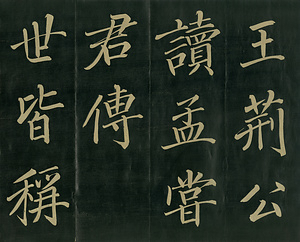 王荊公
讀孟嘗
君傳
世皆稱